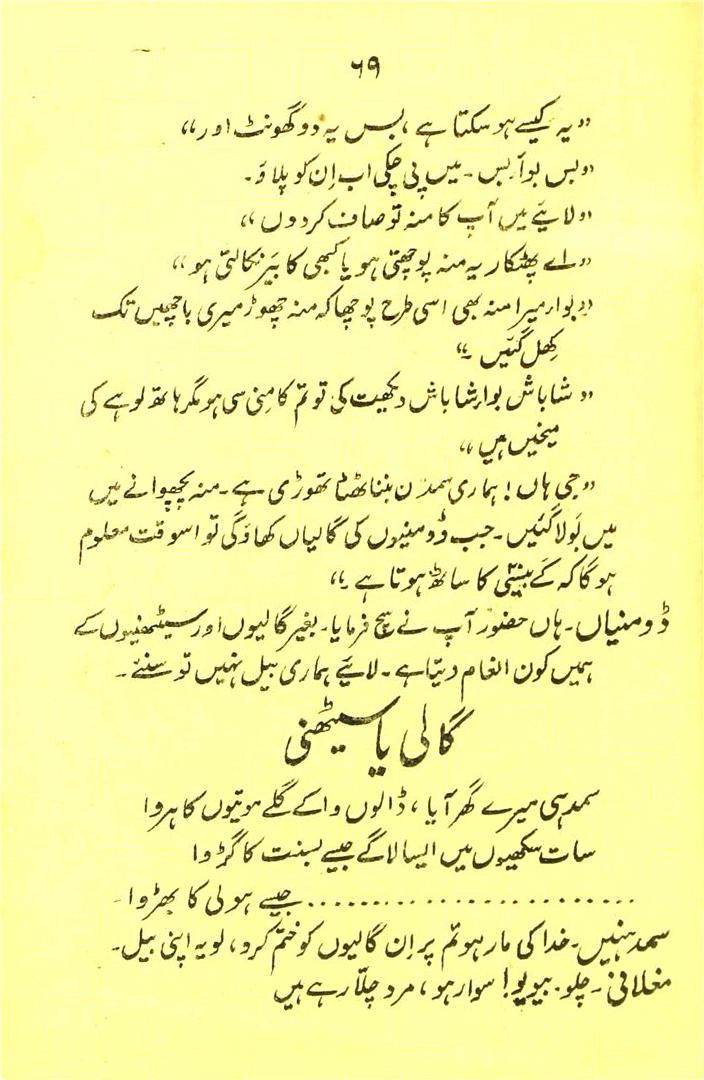 ۶۹
”یہ کیسے ہو سکتا ہے، بس یہ دو گھونٹ اور“
”بس بوا، بس۔ میں پی چکی اب اِن کو پلاؤ۔
”لایئے میں آپ کا منہ تو صاف کر دوں“
”اے پھٹکار یہ منہ پوچھتی ہو یا کبھی کا بَیر نکالتی ہو“
”بوا، میرا منہ بھی اسی طرح پوچھا کہ منہ چھوڑ میری باچھیں تک
کھِل گئیں۔“
”شاباش بوا، شاباش دیکھیت کی تو تم کامِنی سی ہو مگر ہاتھ لوہے کی
میخیں ہیں“
”جی ہاں! ہماری سمدَن بننا ٹھٹا تھوڑی ہے۔ منہ پچھوانے میں
میں بَولا گئیں۔ جب ڈومنیوں کی گالیاں کھاؤ گی تو اسوقت معلوم
ہو گا کہ کَے بیسی کا ساٹھ ہوتا ہے۔“
ڈومنیاں۔ ہاں حضور آپ نے سچ فرمایا۔ بغیر گالیوں اور سیٹھنیوں کے
ہمیں کون انعام دیتا ہے۔ لایئے ہماری بیل نہیں تو سنئے۔
گالی یا سیٹھنی
سمدہی میرے گھر آیا، ڈالوں واکے گلے موتیوں کا ہروا
سات سکھیوں میں ایسا لاگے جیسے بسنت کا گڑوا
.......................... جیسے ہولی کا بھڑوا۔
سمدہنیں۔ خدا کی مار ہو تم پر اِن گالیوں کو ختم کرو، لو یہ اپنی بیل۔
مغلانی۔ چلو بیویو! سوار ہو، مرد چلّا رہے ہیں